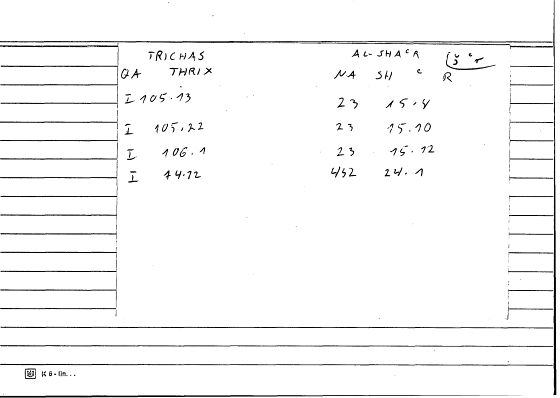 TRICHAS AL-SHAᶜR
QA THRIX NA SH ᶜ R
I 105.13 23 15.4
I 105.22 23 15.10
I 106.1 23 15.12
I 44.12 4/52 24.1
K 6 - lin...